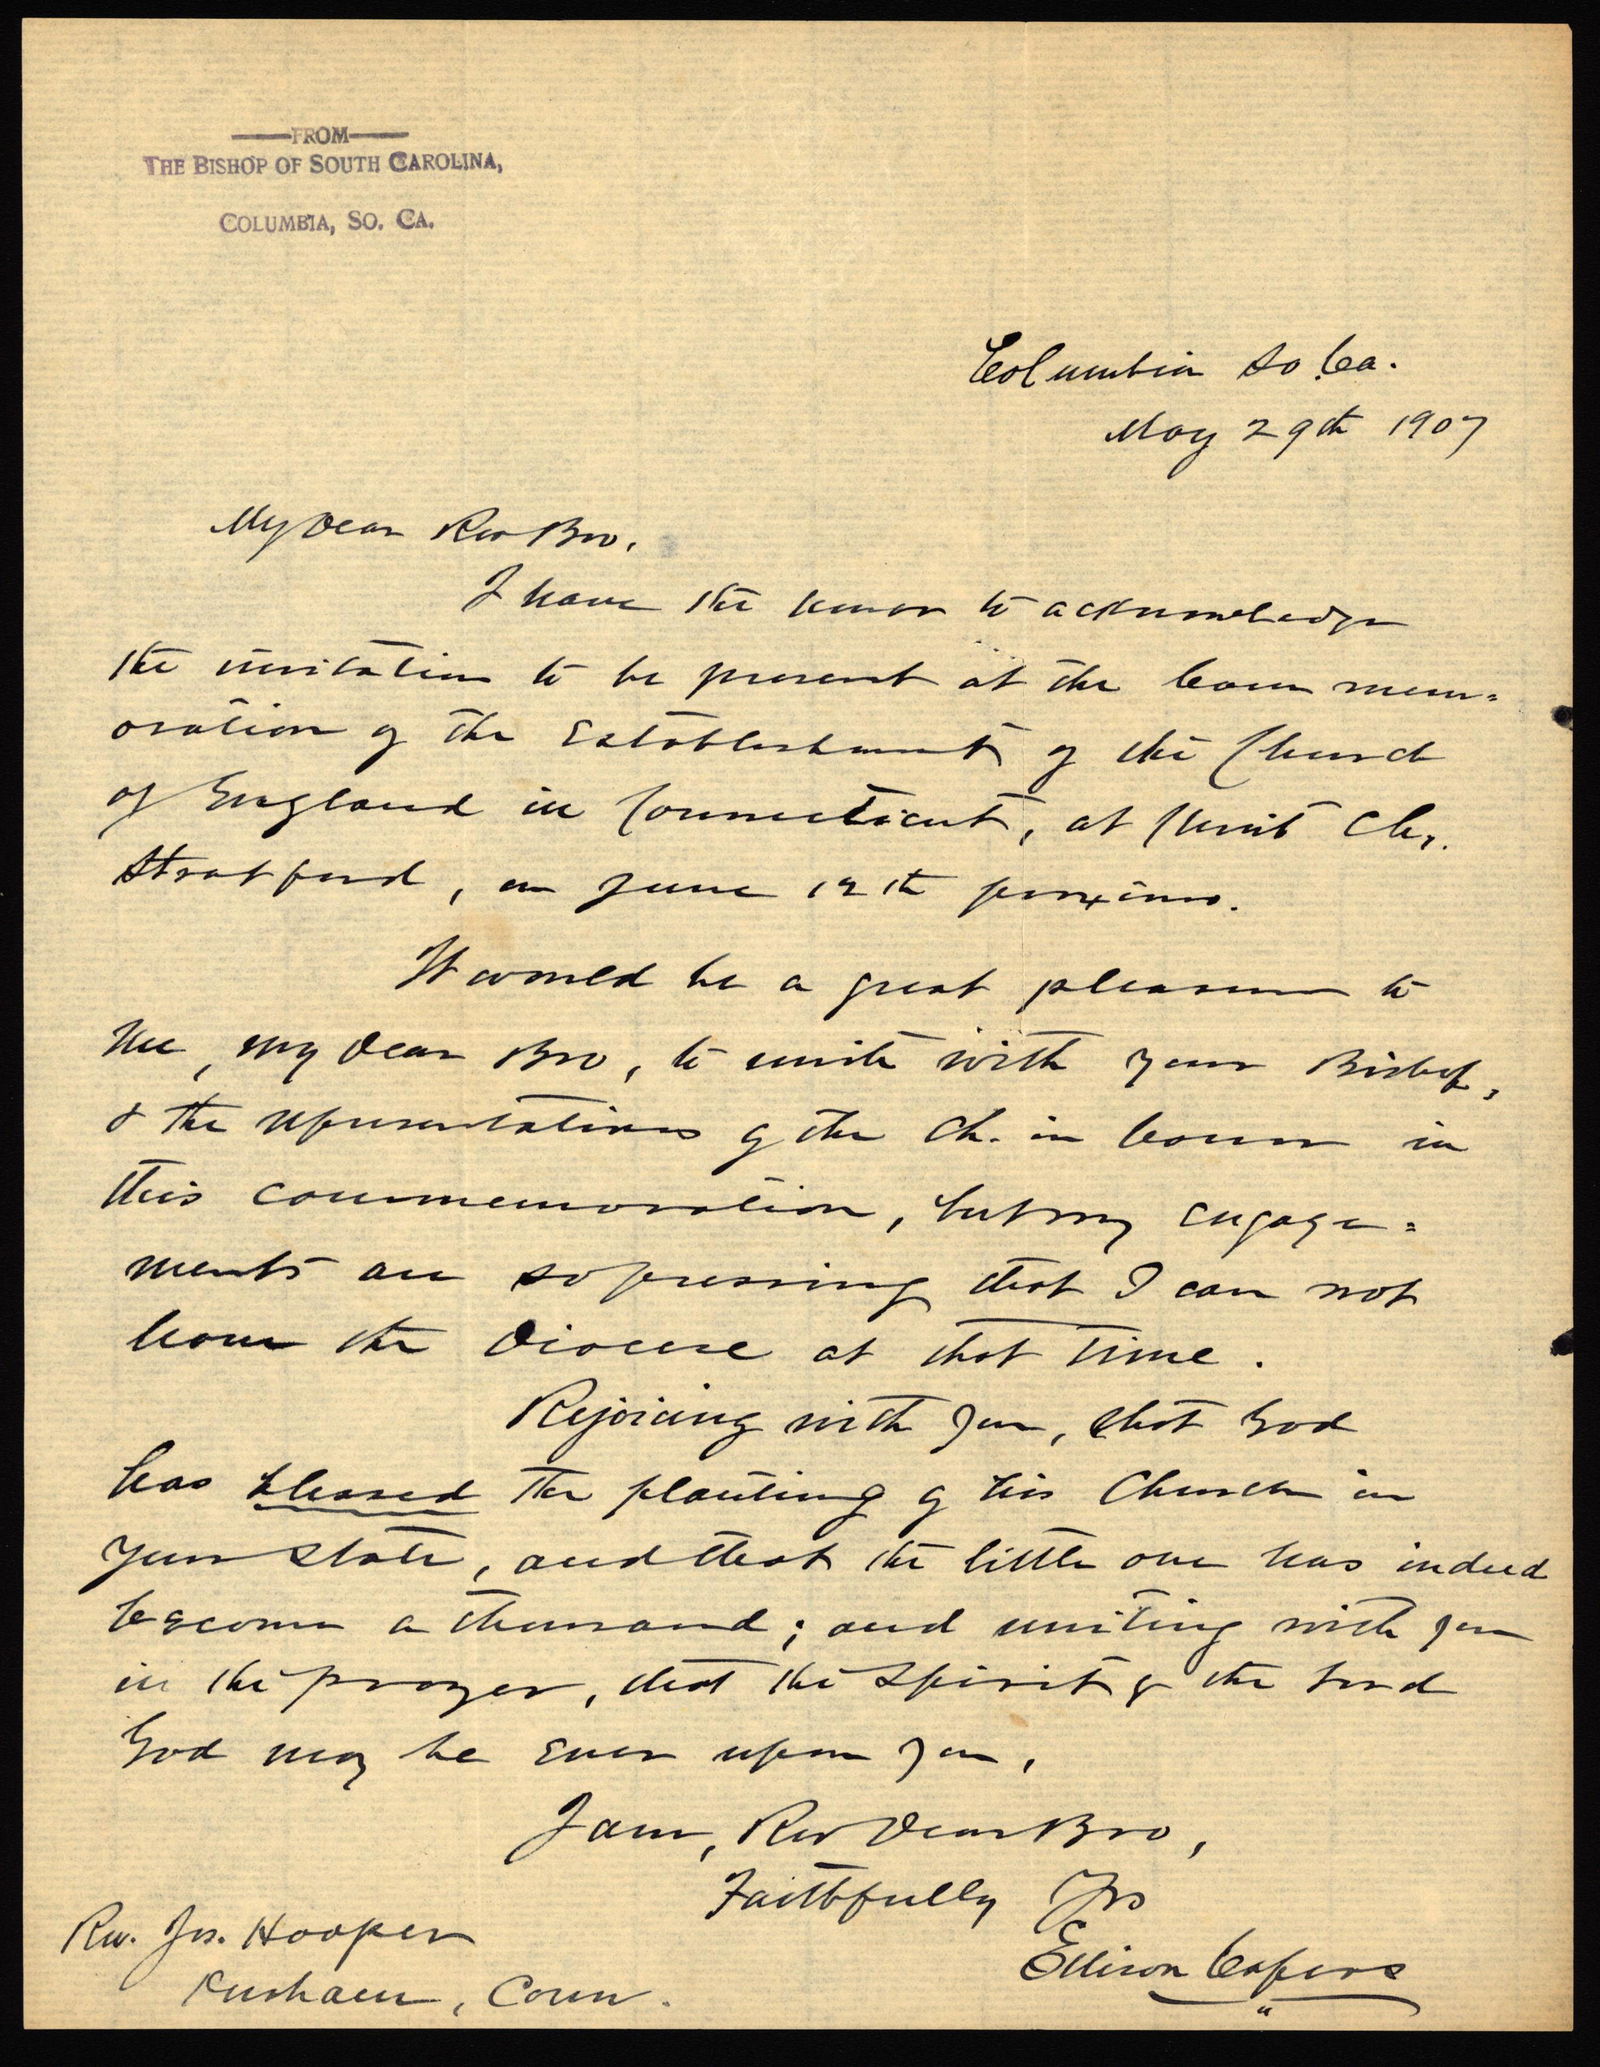 —FROM—
THE BISHOP OF SOUTH CAROLINA,
COLUMBIA, SO. CA.
Columbia So. Ca.
May 29th 1907
My Dear Rev Bro,
I have the honor to acknowledge
the invitation to be present at the Commem=
oration of the Establishment of the Church
of England in Connecticut, at Christ Ch,.
Stratford, on June 12th proximo.
It would be a great pleasure to
me, my Dear Bro, to unite with your Bishop,
& the representatives of the Ch. in Conn in
this commemoration, but my engage=
ments are so pressing that I can not
leave the Diocese at that time.
Rejoicing with you, that God
has blessed the planting of his Church in
your State, and that the little one has indeed
become a thousand; and uniting with you
in the prayer, that the Spirit of the Lord
God may be ever upon you,
I am, Rev Dear Bro,
Faithfully Yrs
Ellison Capers
Rev. Jos. Hooper
Durham, Conn.